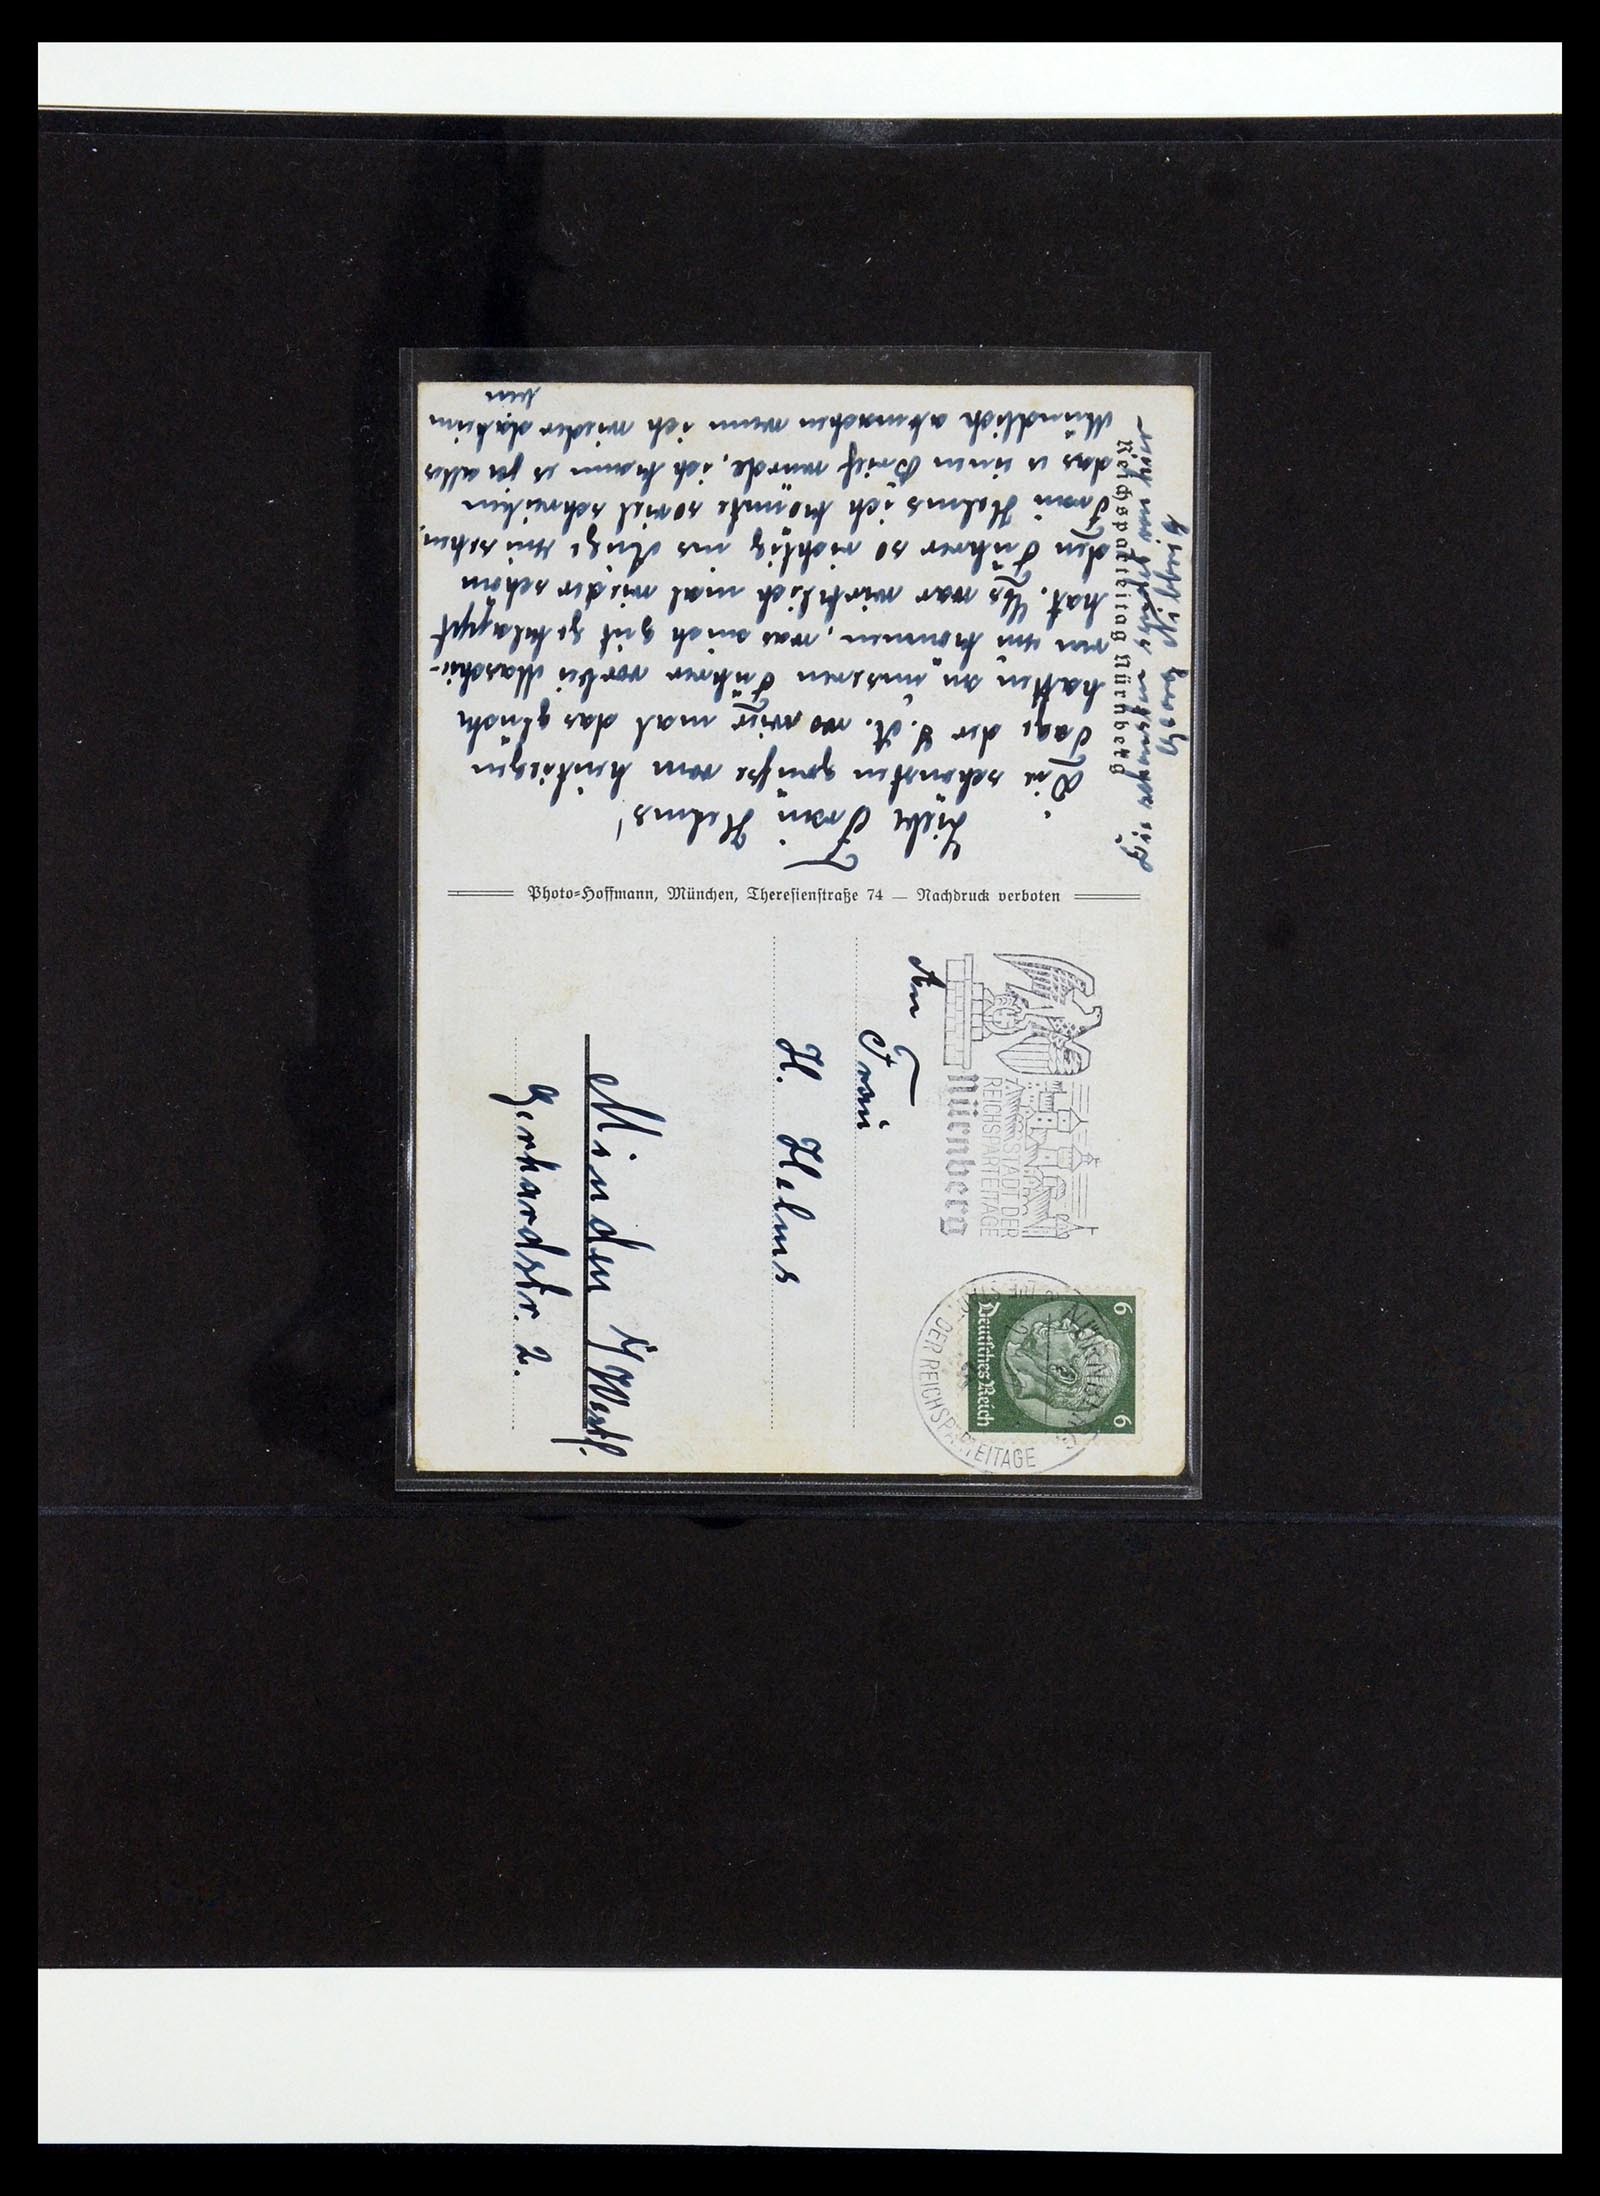 Liebe Frau Helms!
Die schönsten grüße vom heutigen
Tage der S.A. wo wier mal das glück
hatten an unseren Führer vorbei Maschie-
ren zu können, was auch gut geklappt
hat. Es war wirklich mal wieder schön
den Führer so richtig ins Auge zu sehen.
Frau Helms ich könnte soviel schreiben
das es einen Brief wurde, ich kann es ja alles
Mündlich abmachen wenn ich wieder daheim
bin
Reichsparteitag Nürnberg
Photo-Hoffmann, München, Theresienstraße 74 — Nachdruck verboten
Nürnberg
STADT DER
REICHSPARTEITAGE
NÜRNBERG
DER REICHSPARTEITAGE
6 6
Deutsches Reich
An
Frau
H. Helms
Minden i/Westf.
Gerhardstr. 2.